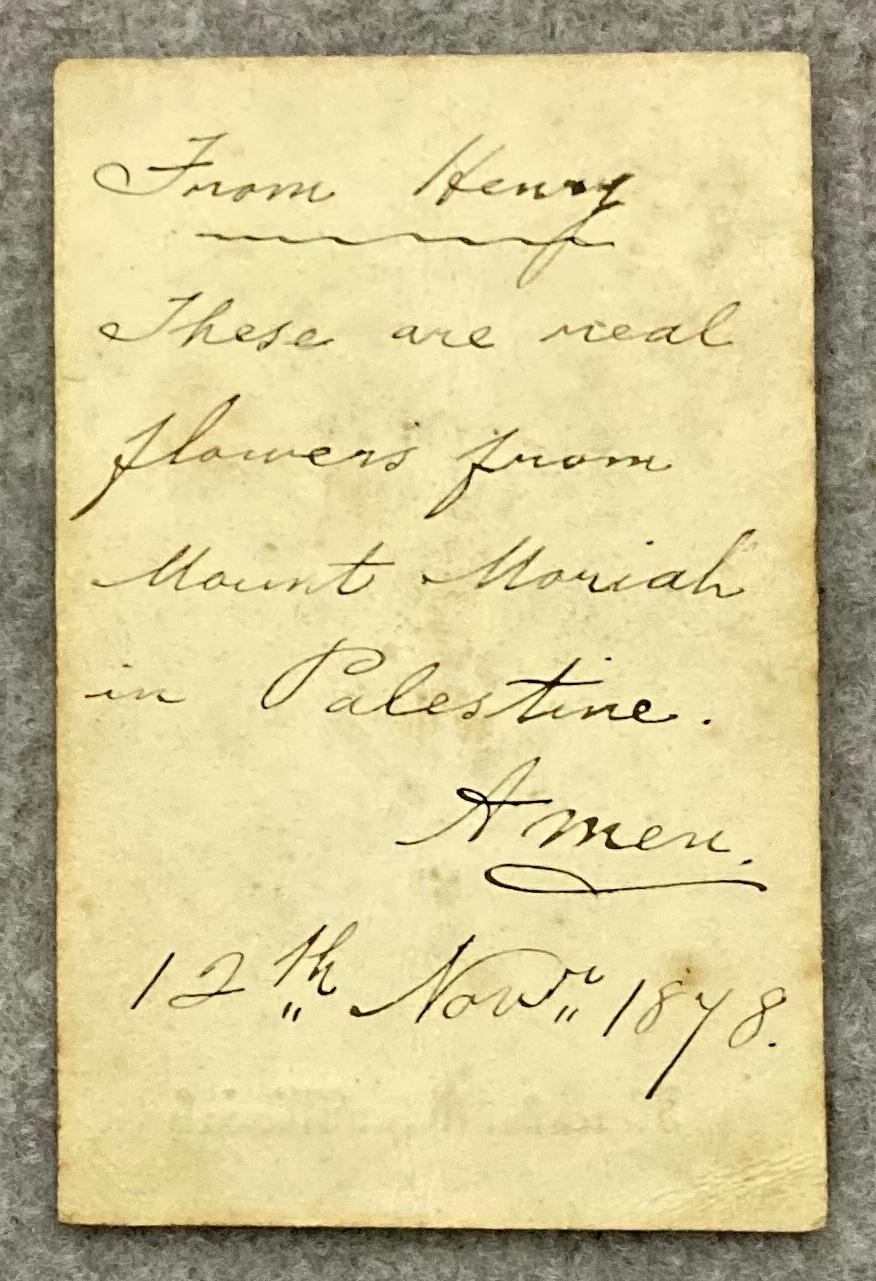 From Henry
These are real
flowers from
Mount Moriah
in Palestine.
Amen.
12th Novr 1878.